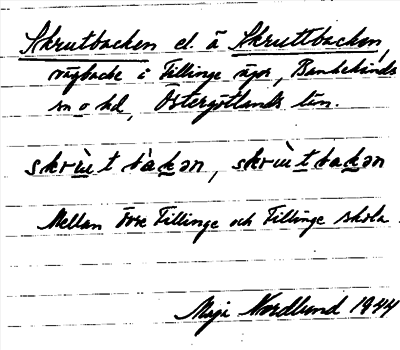 Skrutbacken el. å Skruttbacken,
vägbacke i Tillinge ägor, Bankekinds
sn o hd, Östergötlands län.
skrùt bàcken, skrùt backen
Mellan Övre Tillinge och Tillinge skola.
Maja Nordlund 1944